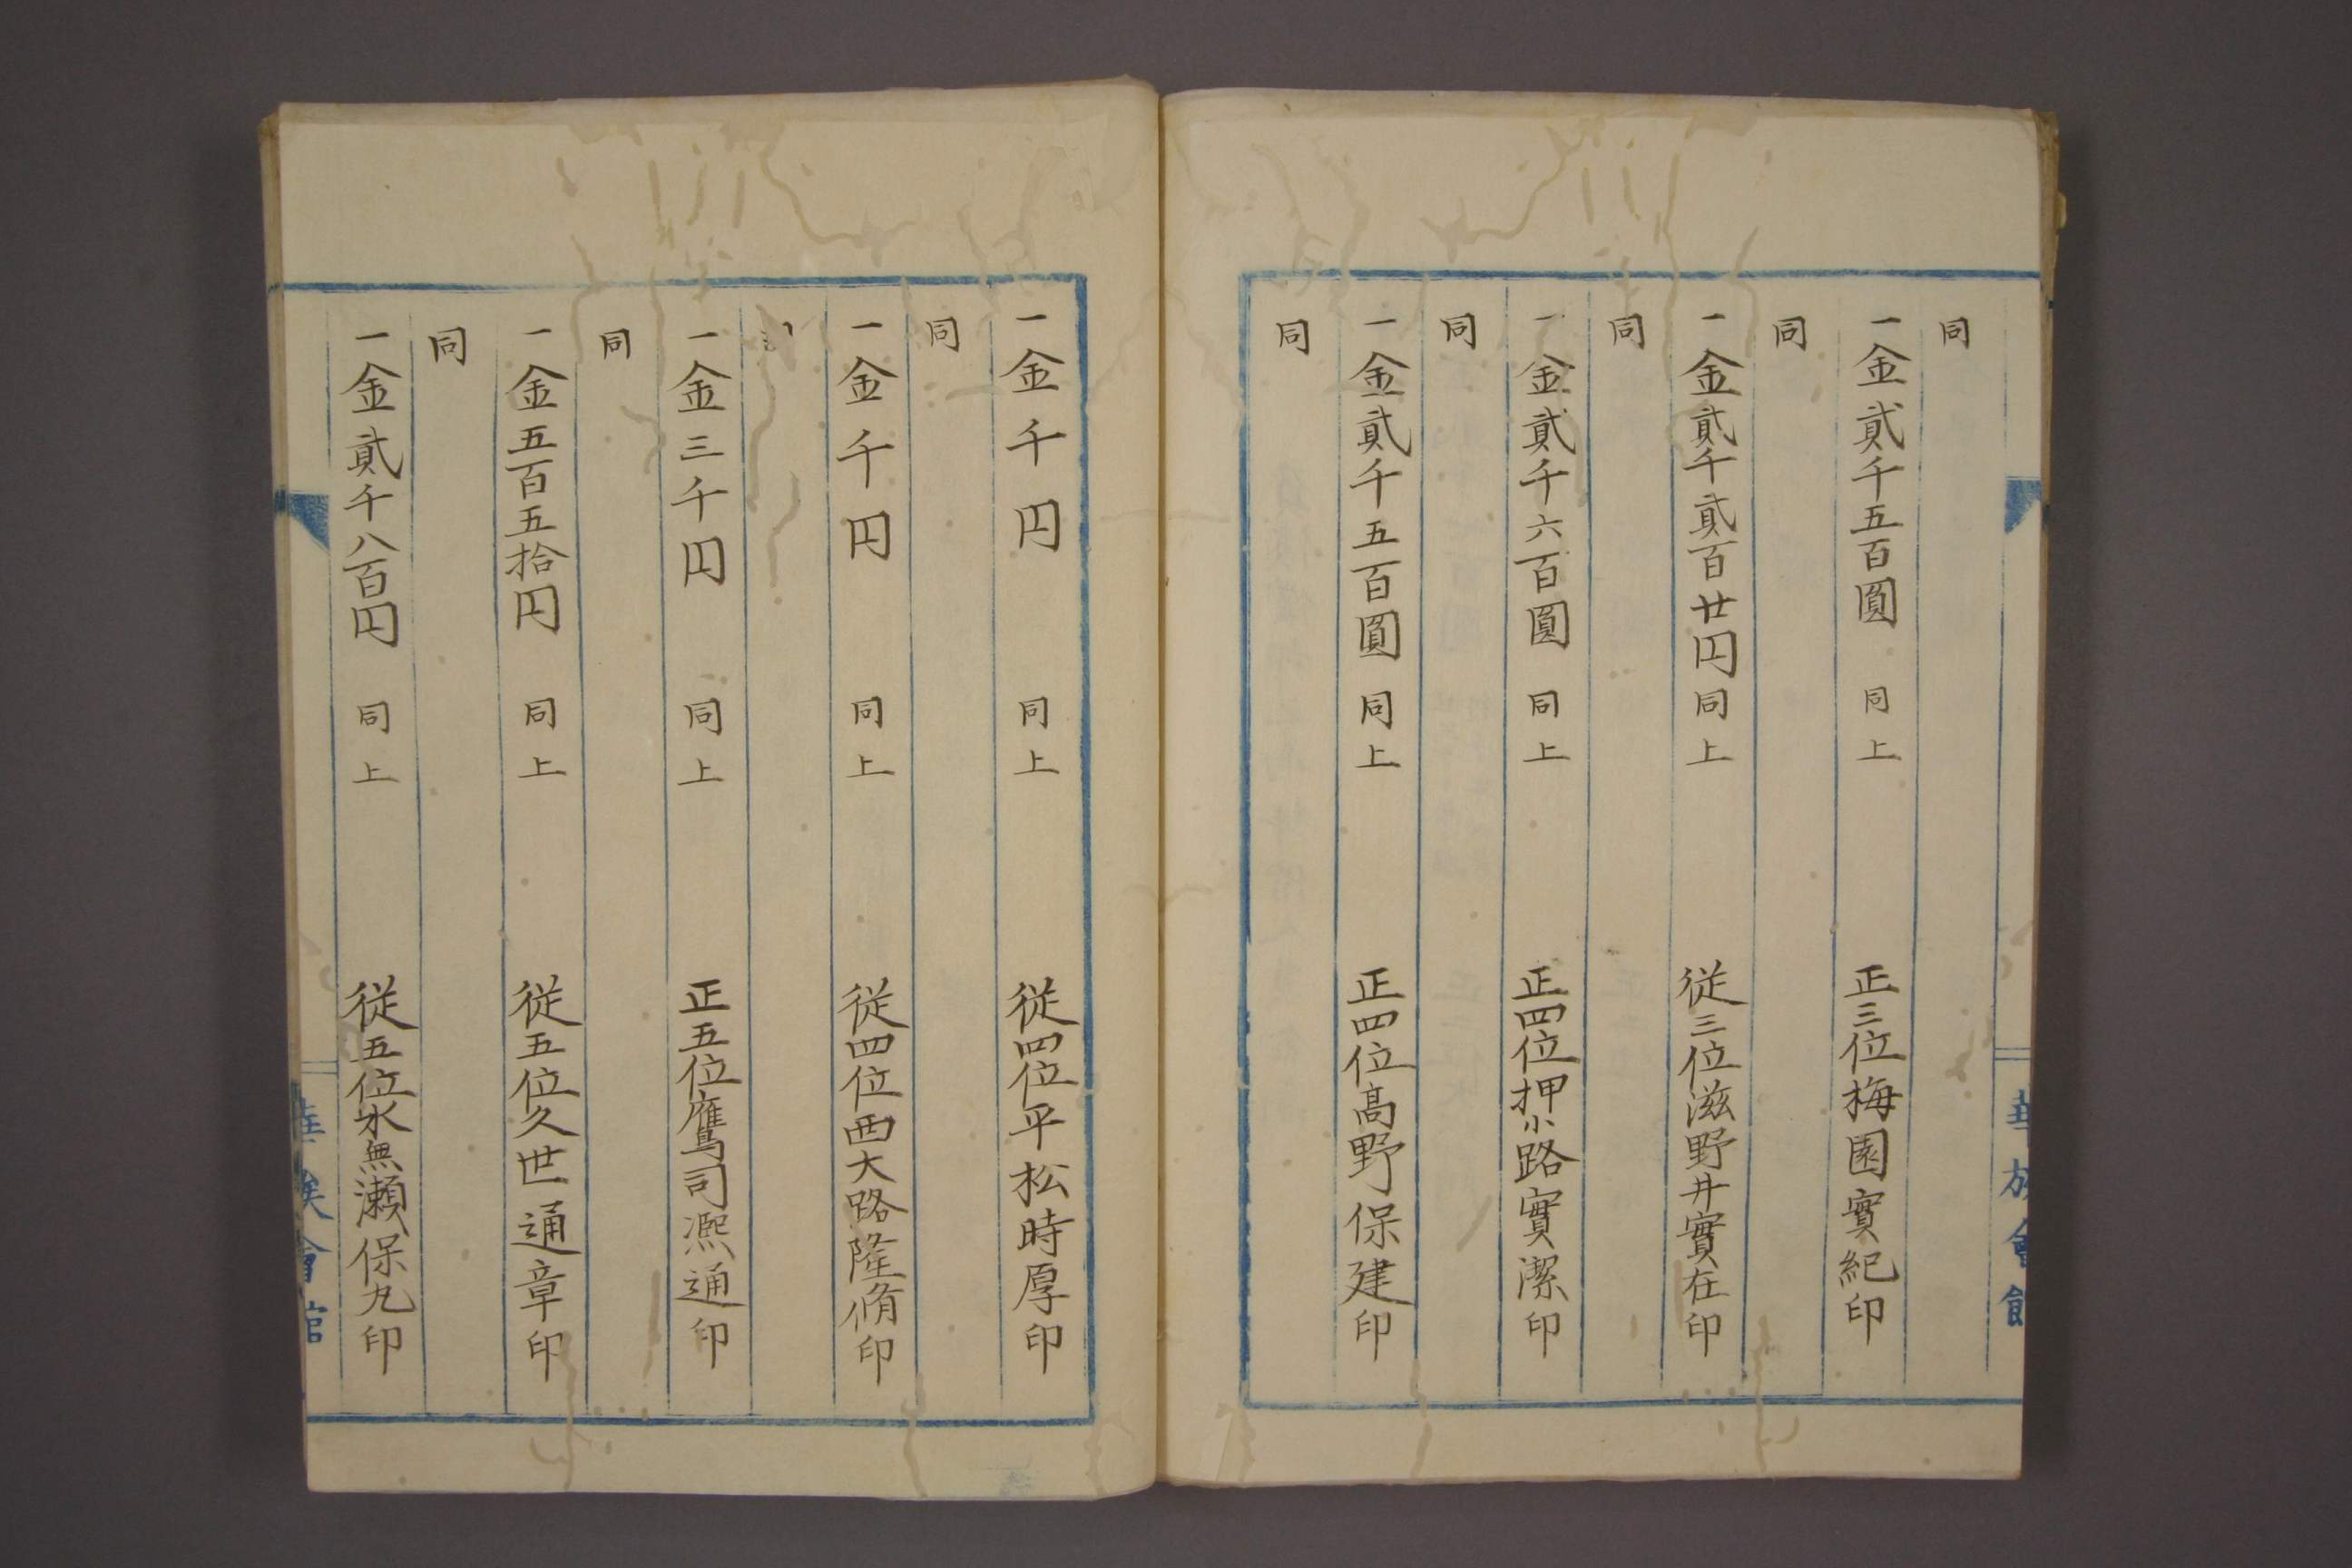 同
一金貳千五百圓 同上 正三位梅園實紀印
同
一金貳千貳百廿円同上 從三位滋野井實在印
同
一金貳千六百圓 同上 正四位押小路實潔印
同
一金貳千五百圓 同上 正四位髙野保建印
同
一金千円 同上 從四位平松時厚印
同
一金千円 同上 從四位西大路隆脩印
一金三千円 同上 正五位鷹司凞通印
同
一金五百五拾円 同上 從五位久世通章印
同
一金貳千八百円 同上 從五位水無瀬保丸印
華族會館
華族會館